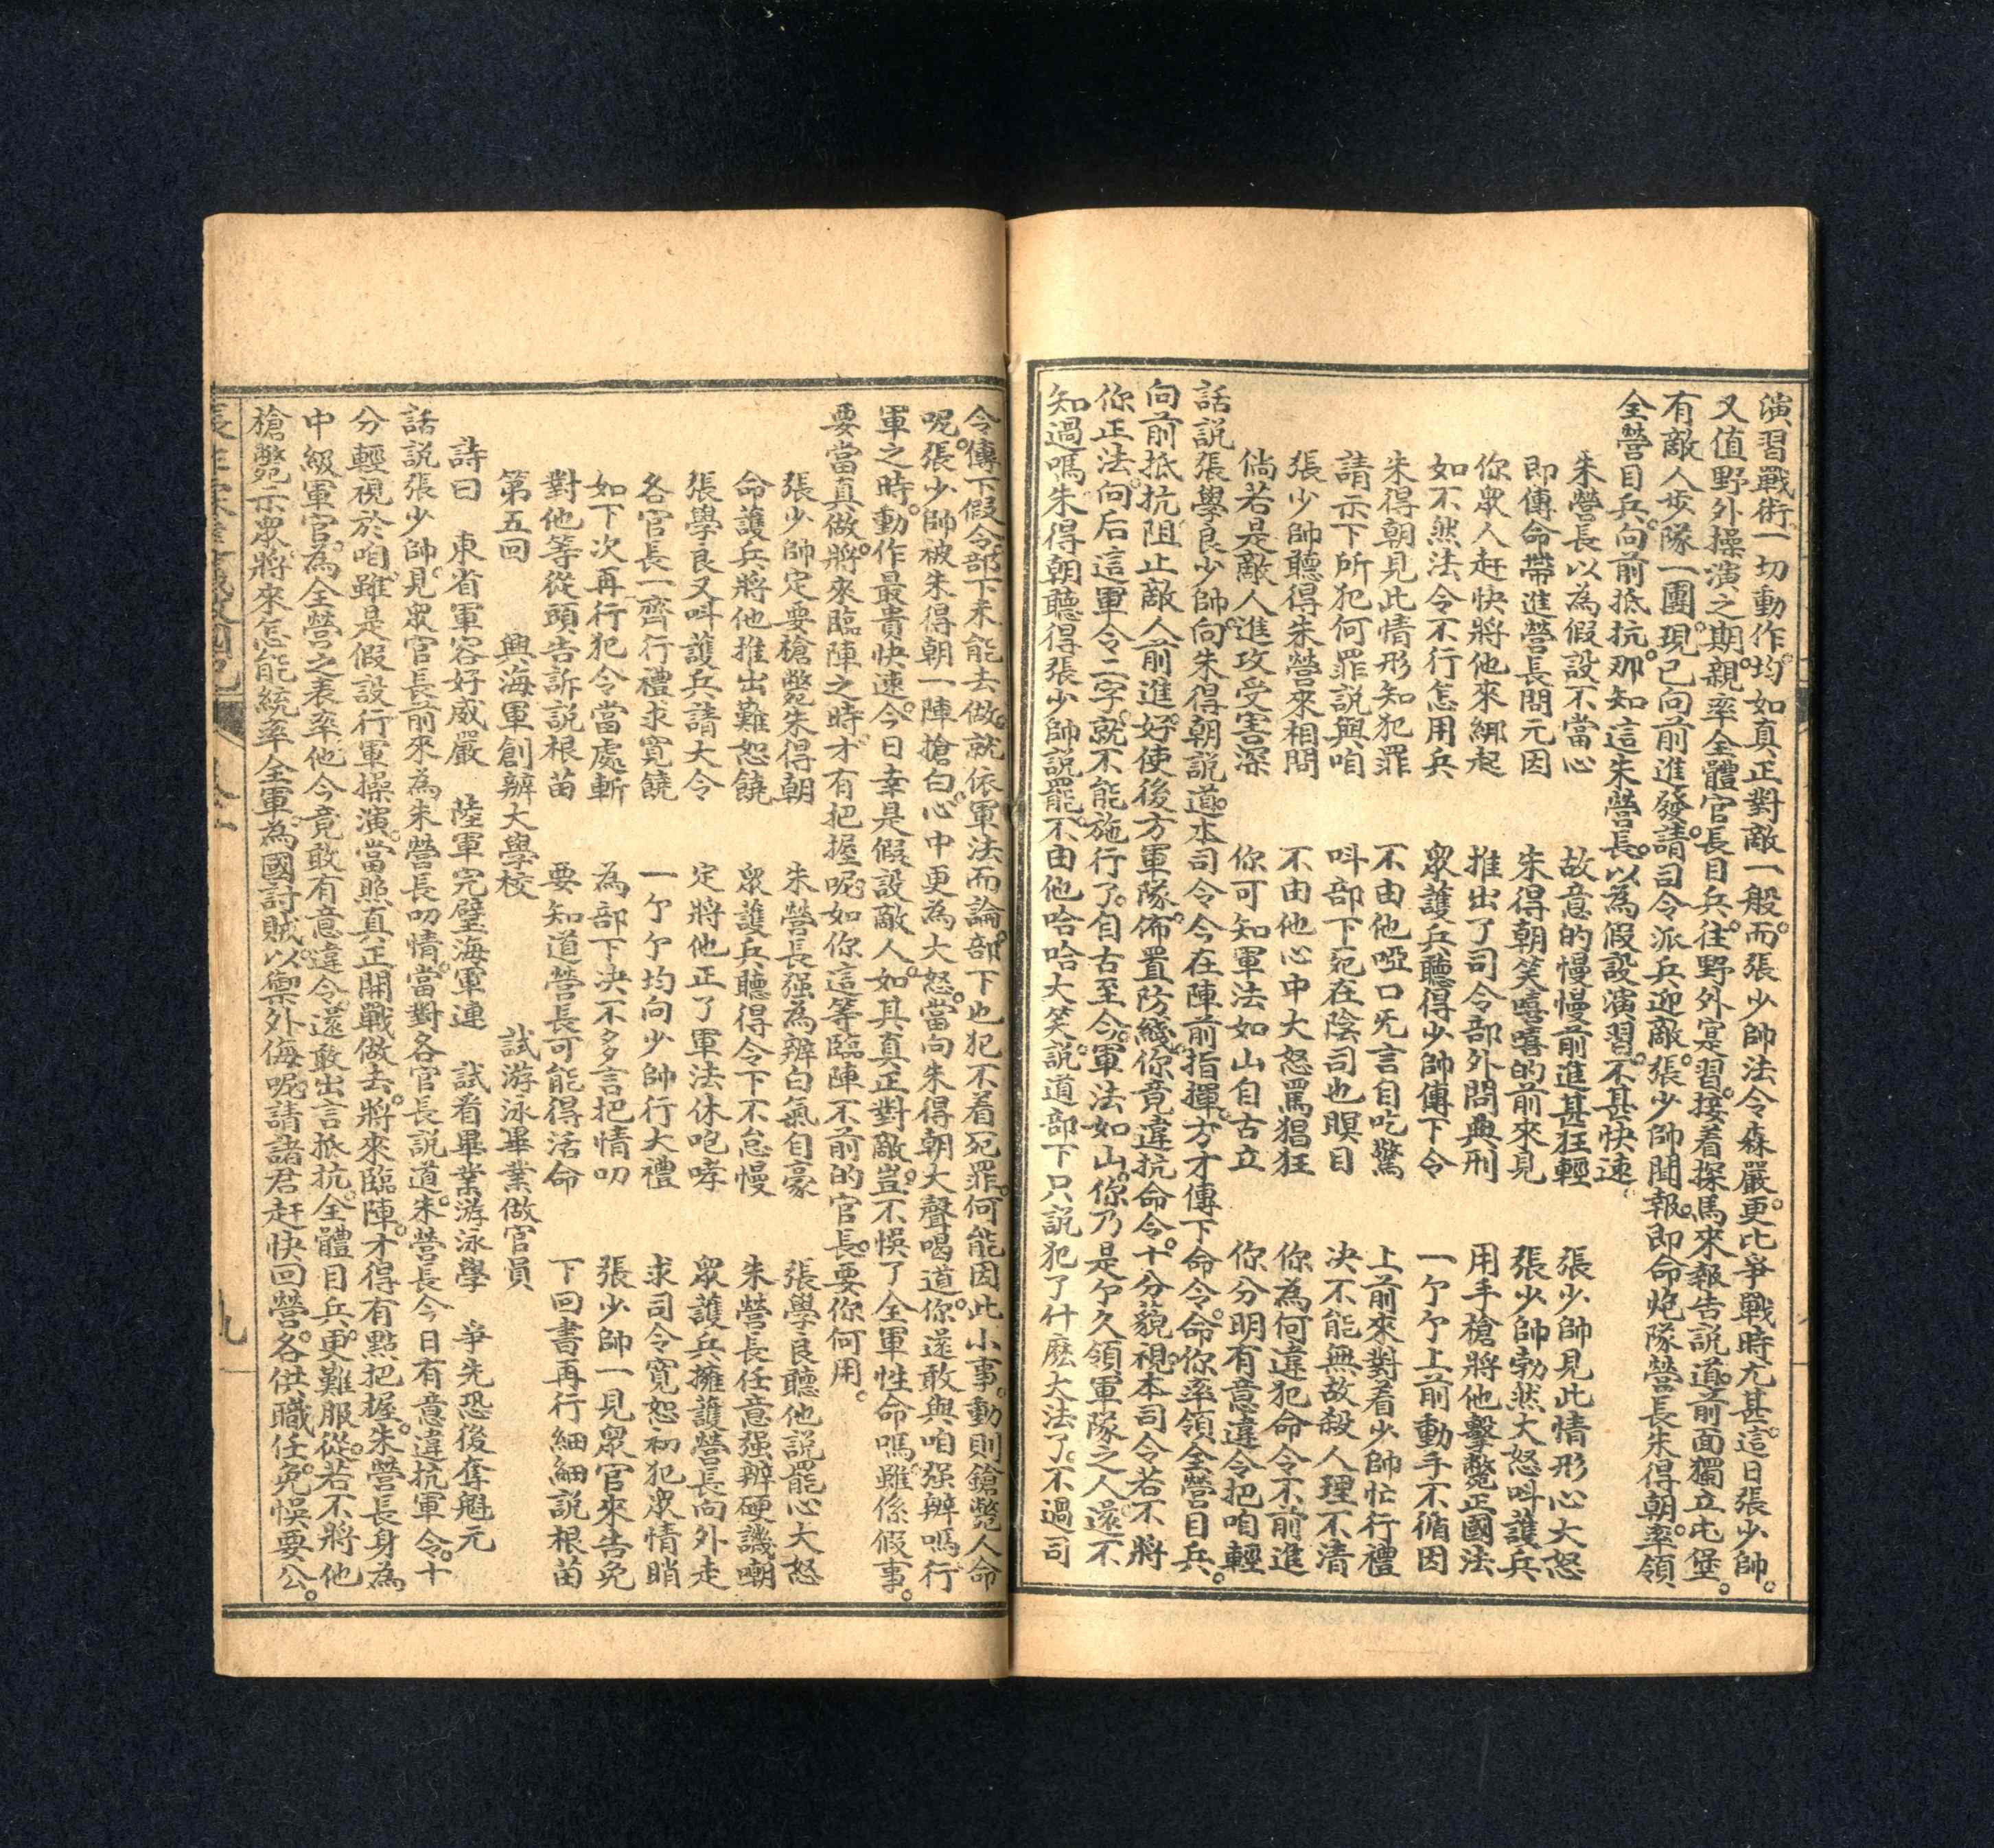 演習戰術一切動作均如真正對敵一般而張少帥法令森嚴更比爭戰時尤甚這日張少帥。
又值野外操演之期親率全體官長目兵往野外寔習接着探馬來報告說道前面獨立屯堡。
有敵人步隊一團現已向前進發請司令派兵迎敵張少帥聞報即命炮隊營長朱得朝率領
全營目兵向前抵抗那知這朱營長以為假設演習不甚快速。
朱營長以為假設不當心 故意的慢慢前進甚狂輕 張少帥見此情形心大怒
即傳命帶進營長問元因 朱得朝笑嘻嘻的前來見 張少帥勃然大怒呌護兵
你眾人赶快將他來綁起 推出了司令部外問典刑 用手槍將他擊斃正國法
如不然法令不行怎用兵 眾護兵聽得少帥傳下令 一个个上前動手不循因
朱得朝見此情形知犯罪 不由他啞口旡言自吃驚 上前來對看少帥忙行禮
請示下所犯何罪說與咱 呌部下死在陰司也瞑目 决不能無故殺人理不清
張少帥聽得朱營來相問 不由他心中大怒罵猖狂 你為何違犯命令不前進
倘若是敵人進攻受害深 你可知軍法如山自古立 你分明有意違令把咱輕
話說張學良少帥向朱得朝說道本司令今在陣前指揮方才傳下命令命你率領全營目兵。
向前抵抗阻止敵人前進好使後方軍隊佈置防綫你竟違抗命令十分藐視本司令若不將
你正法向后這軍令二字就不能施行了自古至今軍法如山你乃是个久領軍隊之人還不
知過嗎朱得朝聽得張少帥說罷不由他哈哈大笑說道部下只說犯了什麽大法了不過司
令傳下假令部下未能去做就依軍法而論部下也犯不着死罪何能因此小事動則鎗斃人命
呢張少帥被朱得朝一陣搶白心中更為大怒當向朱得朝大聲喝道你還敢與咱强辨嗎行
軍之時動作最貴快速今日幸是假設敵人如其真正對敵豈不悞了全軍性命嗎雖係假事。
要當真做將來臨陣之時才有把握呢如你這等臨陣不前的官長要你何用。
張少帥定要槍斃朱得朝 朱營長强為辨白氣自豪 張學良聽他說罷心大怒
命護兵將他推出難恕饒 眾護兵聽得令下不怠慢 朱營長任意强辨硬譏嘲
張學良又呌護兵請大令 定將他正了軍法休咆哮 眾護兵擁護營長向外走
各官長一齊行禮求寬饒 一个个均向少帥行大禮 求司令寬恕初犯眾情睄
如下次再行犯令當處斬 為部下决不多言把情叨 張少帥一見眾官來告免
對他等從頭告訴說根苗 要知道營長可能得活命 下回書再行細細說根苗
第五回 興海軍創辦大學校 試游泳畢業做官員
詩曰 東省軍容好威嚴 陸軍完璧海軍連 試看畢業游泳學 爭先恐後奪魁元
話說張少帥見眾官長前來為朱營長叨情當對各官長說道朱營長今日有意違抗軍令十
分輕視於咱雖是假設行軍操演當照真正開戰做去將來臨陣才得有點把握朱營長身為
中級軍官為全營之表率他今竟敢有意違令還敢出言抵抗全體目兵更難服從若不將他
槍斃示眾將來怎能統率全軍為國討賊以禦外侮呢請諸君赶快回營各供職任免悞要公。
九